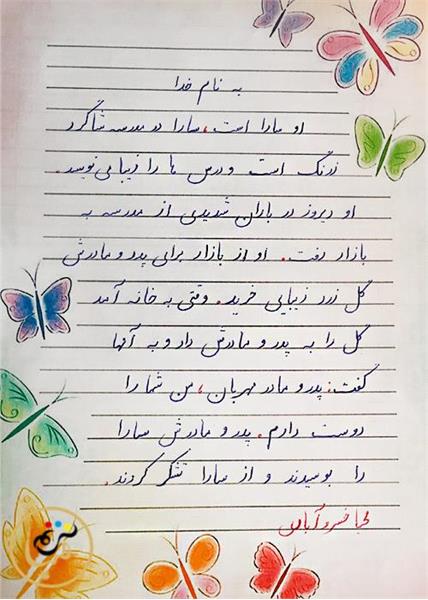 به نام خدا
او سارا است، سارا در مدرسه شاگرد
زرنگ است و درس ها را زیبا می نویسد.
او دیروز در باران شدیدی از مدرسه به
بازار رفت. او از بازار برای پدر و مادرش
گل زرد زیبایی خرید. وقتی به خانه آمد
گل را به پدر و مادرش داد و به آنها
گفت: پدر و مادر مهربان، من شما را
دوست دارم. پدر و مادرش سارا
را بوسیدند و از سارا تشکر کردند.
خسروآبادی